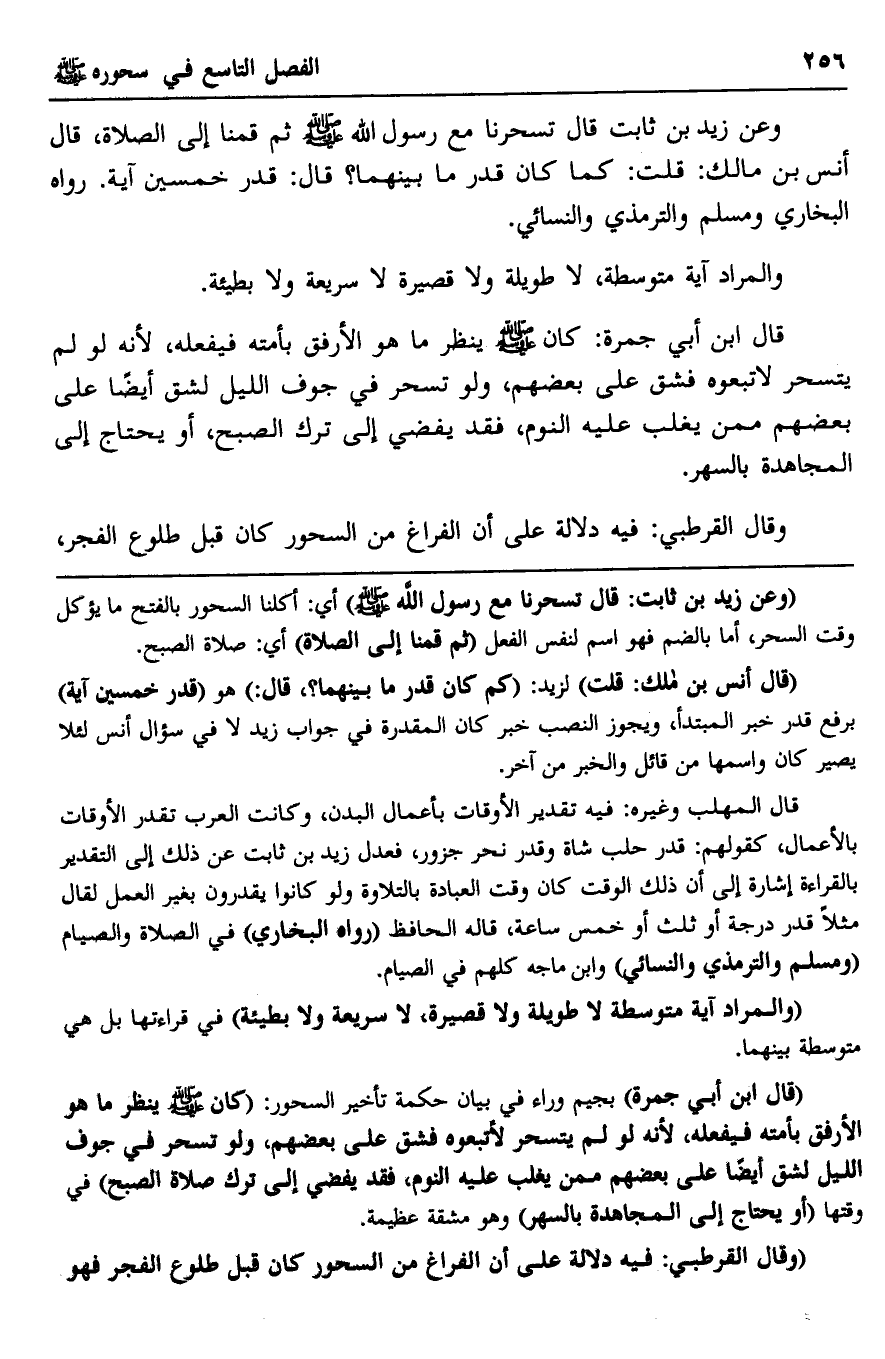 ٢٥٦
الفصل التاسع في سحوره ﷺ
وعن زيد بن ثابت قال تسحرنا مع رسول الله ﷺ ثم قمنا إلى الصلاة، قال
أنس بن مالك: قلت: كما كان قدر ما بينهما؟ قال: قدر خمسين آية. رواه
البخاري ومسلم والترمذي والنسائي.
والمراد آية متوسطة، لا طويلة ولا قصيرة لا سريعة ولا بطيئة.
قال ابن أبي جمرة: كان ﷺ ينظر ما هو الأرفق بأمته فيفعله، لأنه لو لم
يتسحر لاتبعوه فشق على بعضهم، ولو تسحر في جوف الليل لشق أيضًا على
بعضهم ممن يغلب عليه النوم، فقد يفضي إلى ترك الصبح، أو يحتاج إلى
المجاهدة بالسهر.
وقال القرطبي: فيه دلالة على أن الفراغ من السحور كان قبل طلوع الفجر،
(وعن زيد بن ثابت: قال تسحرنا مع رسول اللَّه ﷺ) أي: أكلنا السحور بالفتح ما يؤكل
وقت السحر، أما بالضم فهو اسم لنفس الفعل (ثم قمنا إلى الصلاة) أي: صلاة الصبح.
(قال أنس بن مٰلك: قلت) لزيد: (كم كان قدر ما بينهما؟، قال:) هو (قدر خمسين آية)
برفع قدر خبر المبتدأ، ويجوز النصب خبر كان المقدرة في جواب زيد لا في سؤال أنس لئلا
يصير كان واسمها من قائل والخبر من آخر.
قال المهلب وغيره: فيه تقدير الأوقات بأعمال البدن، وكانت العرب تقدر الأوقات
بالأعمال، كقولهم: قدر حلب شاة وقدر نحر جزور، فعدل زيد بن ثابت عن ذلك إلى التقدير
بالقراءة إشارة إلى أن ذلك الوقت كان وقت العبادة بالتلاوة ولو كانوا يقدرون بغير العمل لقال
مثلاً قدر درجة أو ثلث أو خمس ساعة، قاله الحافظ (رواه البخاري) في الصلاة والصيام
(ومسلم والترمذي والنسائي) وابن ماجه كلهم في الصيام.
(والمراد آية متوسطة لا طويلة ولا قصيرة، لا سريعة ولا بطيئة) في قراءتها بل هي
متوسطة بينهما.
(قال ابن أبي جمرة) بجيم وراء في بيان حكمة تأخير السحور: (كان ﷺ ينظر ما هو
الأرفق بأمته فيفعله، لأنه لو لم يتسحر لأتبعوه فشق على بعضهم، ولو تسحر في جوف
الليل لشق أيضًا على بعضهم ممن يغلب عليه النوم، فقد يفضي إلى ترك صلاة الصبح) في
وقتها (أو يحتاج إلى المجاهدة بالسهر) وهو مشقة عظيمة.
(وقال القرطبي: فيه دلالة على أن الفراغ من السحور كان قبل طلوع الفجر فهو